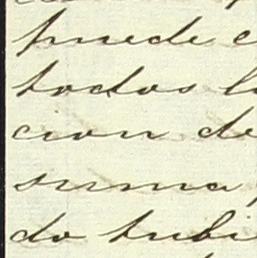 puede
todos l
cion de
suma,
do tubi